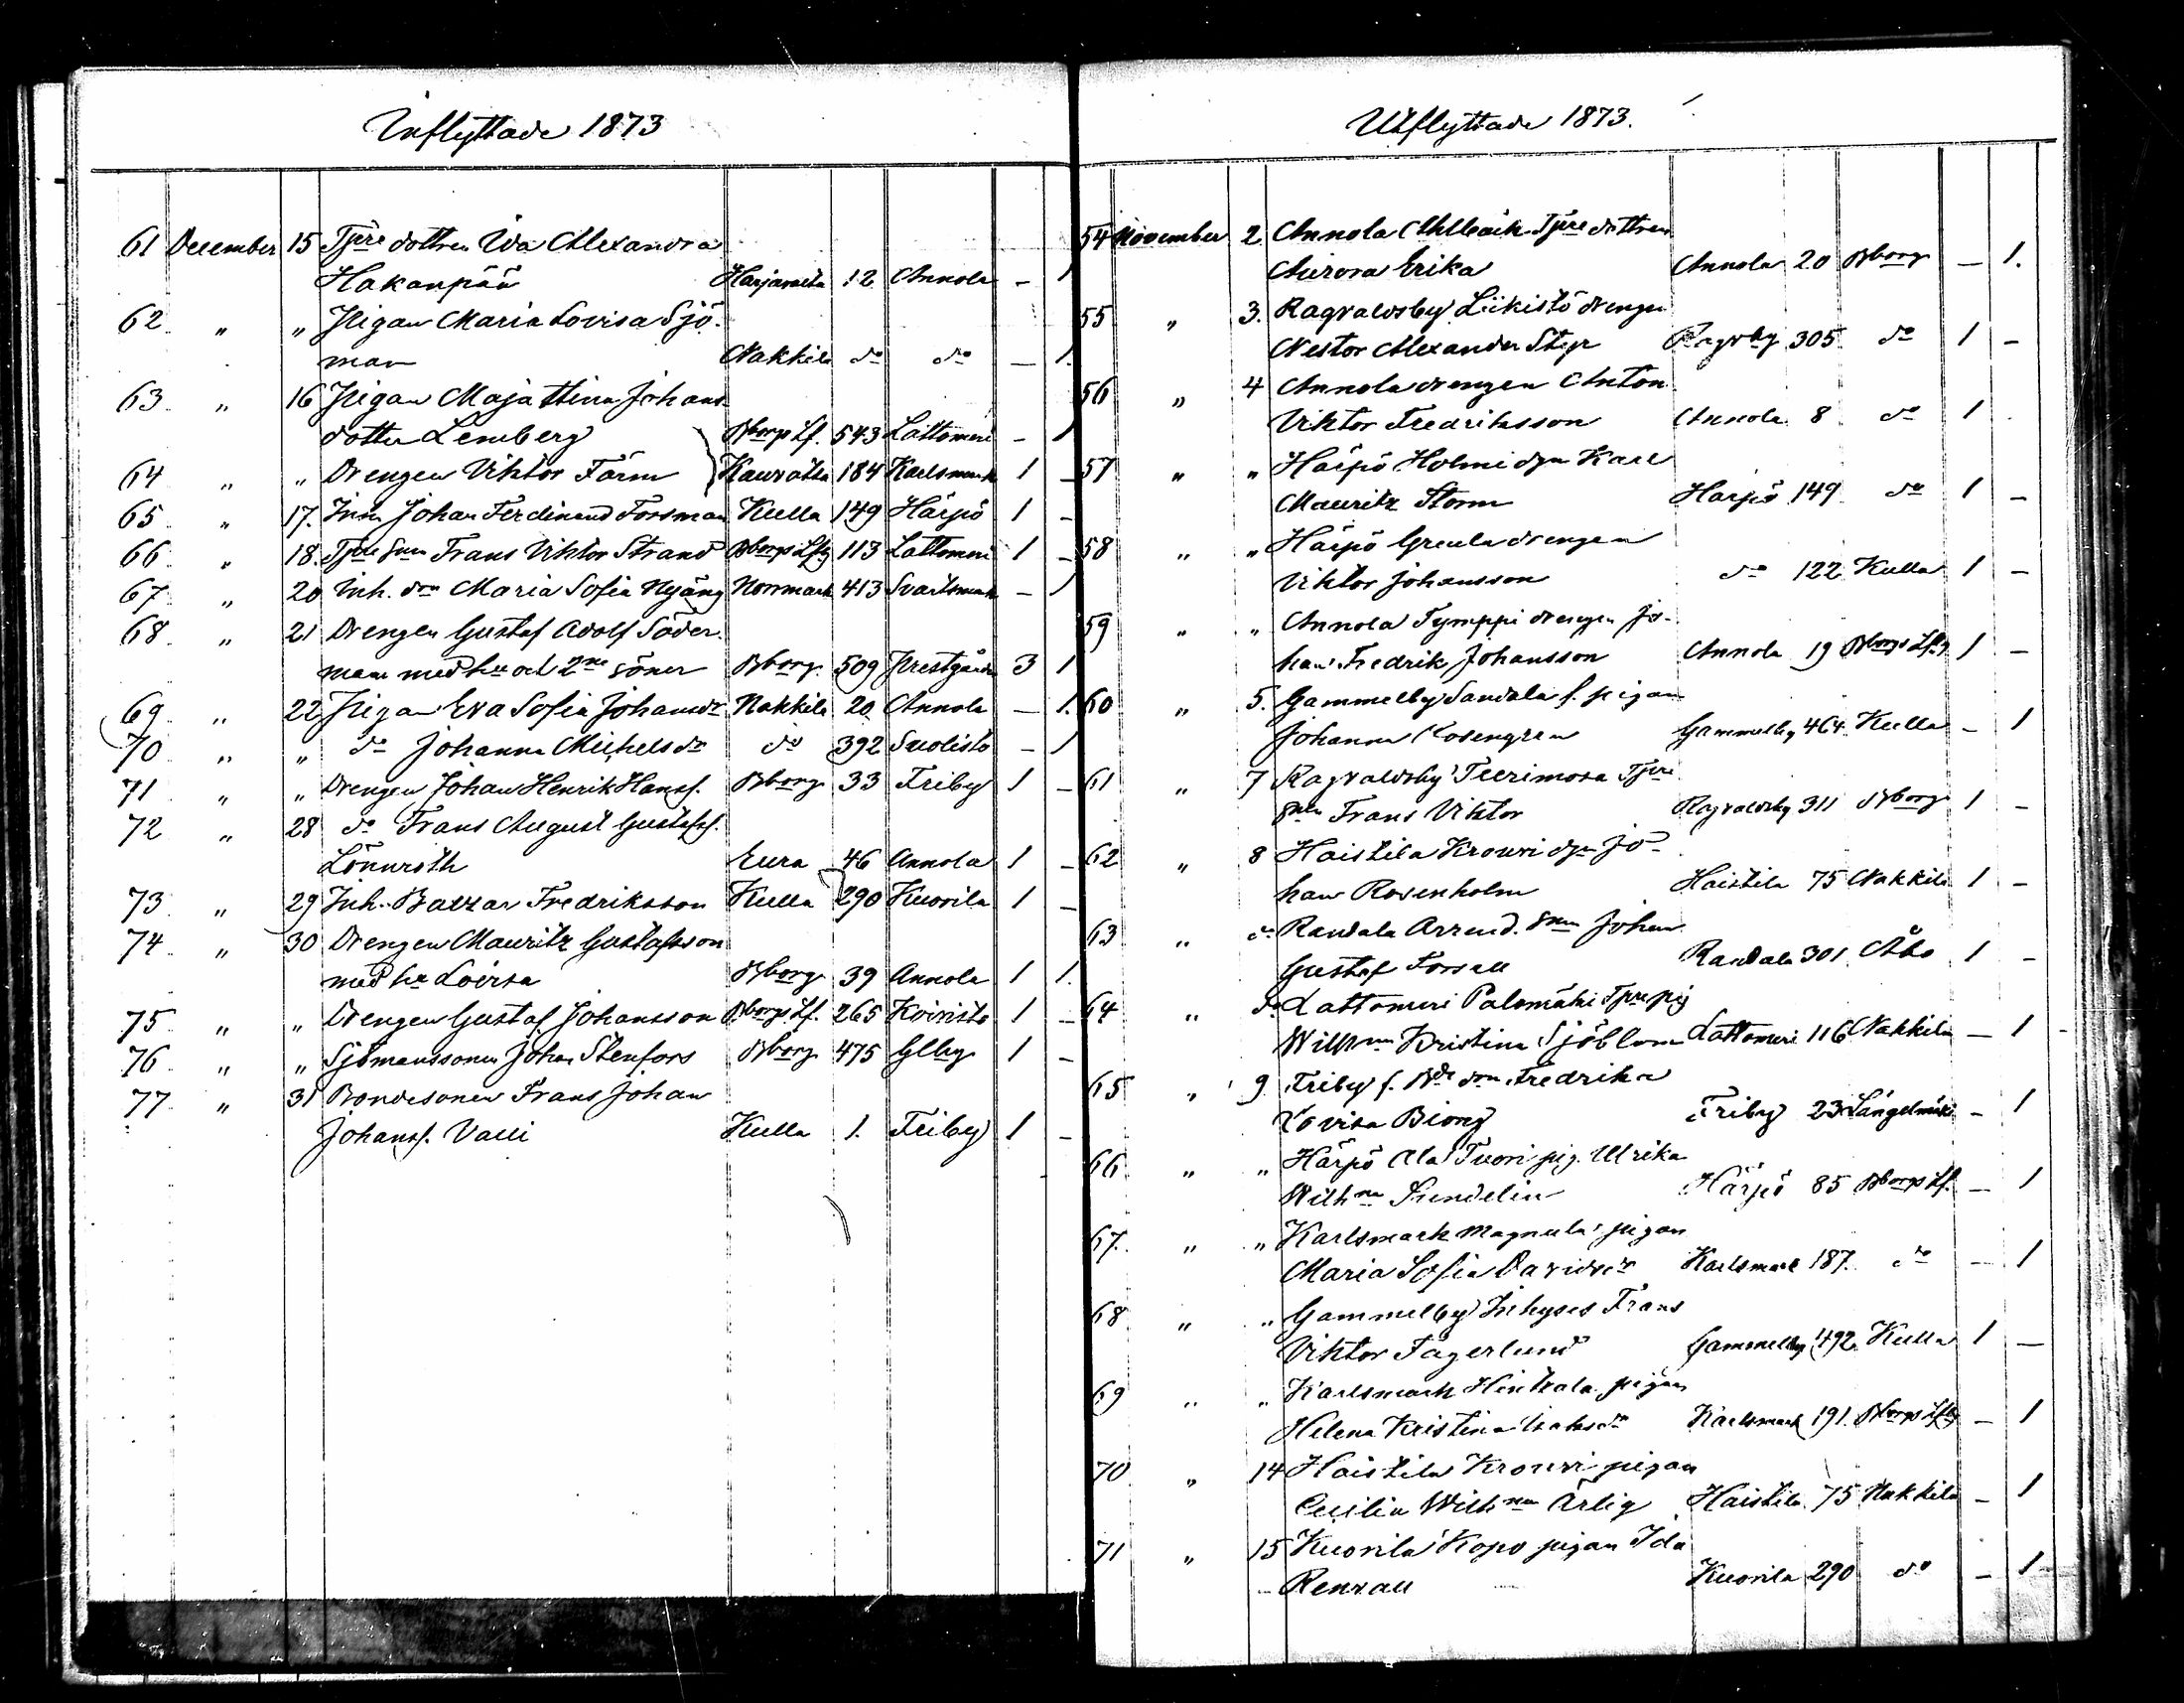 Inflyttade 1873
61 December 15 Tjre dottren Ida Alexandra
Hakanpää Harjavalta 12 Annola - 1
62 " " Pigan Maria Lovisa Sjö-
man Nakkila do do - 1.
63 " 16 Pigan Maja Stina Johans
dotter Lemberg Bborgs Lf. 543 Lattomeri - 1
64 " " Drengen Viktor Färm Kauvatsa 184 Karlsmark 1 -
65 " 17. Inh. Johan Ferdinand Forsman Kulla 149 Härpö 1 -
66 " 18. Tjre Son Frans Viktor Strand Bborgs Lfg 113 Lattomeri 1 -
67 " 20 Inh. drn Maria Sofia Nyäng Norrmark 413 Svartsmark - 1
68 " 21 Drengen Gustaf Adolf Söder-
man med hu och 2ne söner Bborg 509 Prestgården 3 1
69 " 22 Pigan Eva Sofia Johansdr Nakkila 20 Annola - 1.
70 " " do Johanna Michelsdr do 392 Suolisto - 1
71 " " Drengen Johan Henrik Hanss. Bborg 33 Friby 1 -
72 " 28 do Frans August Gustafss.
Lönnroth Eura 46 Annola 1 -
73 " 29 Inh. Balzar Fredriksson Kulla 290 Kuorila 1 -
74 " 30 Drengen Mauritz Gustafsson
med hu Lovisa Bborg 39 Annola 1 1.
75 " " Drengen Gustaf Johansson Bborgs Lf. 265 Koivisto 1 -
76 " " Sjömanssonen Johan Stenfors Bborg 475 Glby 1 -
77 " 31 Bondesonen Frans Johan
Johanss. Valli Kulla 1. Friby 1 -
Utflyttade 1873.
54 November 2 Annola Ahlbäck Tjre dottren
Aurora Erika Annola 20 Bborg - 1.
55 " 3. Ragvaldsby Liikistö drengen
Nestor Alexander Ragvby 305 do 1 -
56 " 4 Annola drengen Anton
Viktor Fredriksson Annola 8 do 1
57 " " Härpö Holmi dgn Karl
Mauritz Storm Härpö 149 do 1 -
58 " " Härpö Greula drengen
Viktor Johansson do 122 Kulla 1 -
59 " " Annola Tymppi drengen Jo-
han Fredrik Johansson Annola 19 Bborgs Lfg 1 -
60 " 5. Gammelby Sandala f. pigan
Johanna Rosengren Gammelby 464 Kulla - 1
61 " 7 Ragvaldsby Teerimosa Tjre
Snen Frans Viktor Ragvaldsby 311 Bborg 1 -
62 " 8 Haistila Krouvi dgn Jo-
han Rosenholm Haistila 75 Nakkila 1 -
63 " do Randala Arrend. Snen Johan
Gustaf Forsell Randala 301 Åbo 1 -
64 " do Lattomeri Palomäki Tjre pig
Wilhna Kristina Sjöblom Lattomeri 116 Nakkila - 1 -
65 " 9 Friby f. Bde drn Fredrika
Lovisa Biong Friby 23 Längelmäki - 1
66 " " Härpö Ala Tuori pig. Ulrika
Wilhna Sundelin Härpö 85 Bborgs Lf. - 1
67. " " Karlsmark Magnula pigan
Maria Sofia Davidsdr Karlsmark 187. do - 1
68 " " Gammelby Inhyses Frans
Viktor Fagerlund Gammelby 492 Kulla 1 -
69 " " Karlsmark Hintzala pigan
Helena Kristina Isaksdr Karlsmark 191 Bborgs Lfg - 1
70 " 14 Haistila Krouvi pigan
Cecilia Wilhna Ärlig Haistila 75 Nakkila - 1
71 " 15 Kuorila Kopo pigan Ida
Renvall Kuorila 290 do - 1